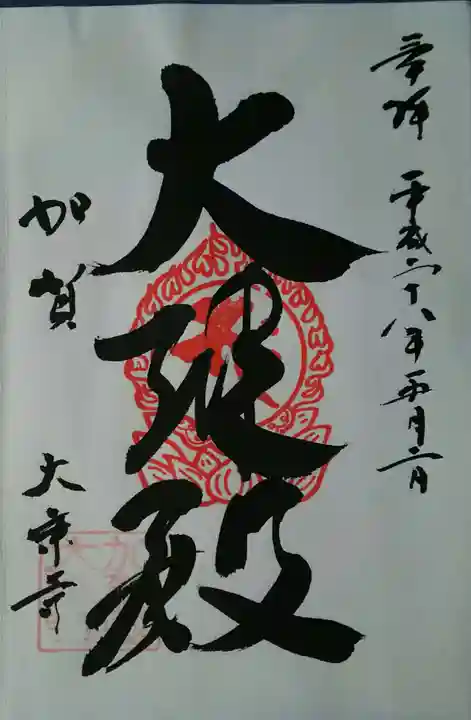 奉拝 平成二十八年五月二日
大雄殿
加賀 大乗寺